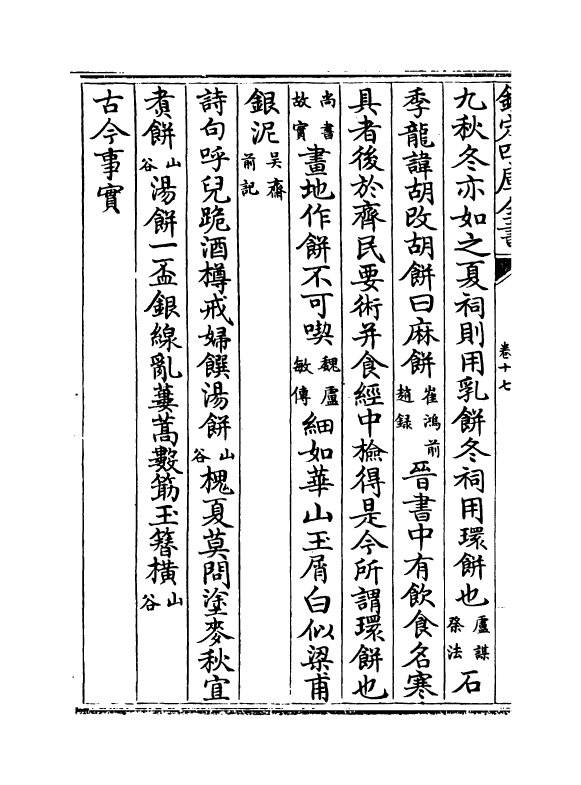 欽定四庫全書
卷十七
九秋冬亦如之夏祠則用乳餅冬祠用環餅也盧諶祭法石
季龍諱胡改胡餅曰麻餅崔鴻前趙録晉書中有飲食名寒
具者後於齊民要術并食經中檢得是今所謂環餅也
尚書故實畫地作餅不可喫魏盧敏傳細如華山玉屑白似梁甫
銀泥吴齋前記
詩句呼兒跪酒樽戒婦饌湯餅山谷槐夏莫問塗麥秋宜
煑餅山谷湯餅一盃銀線亂蔞蒿數筯玉簪橫山谷
古今事實